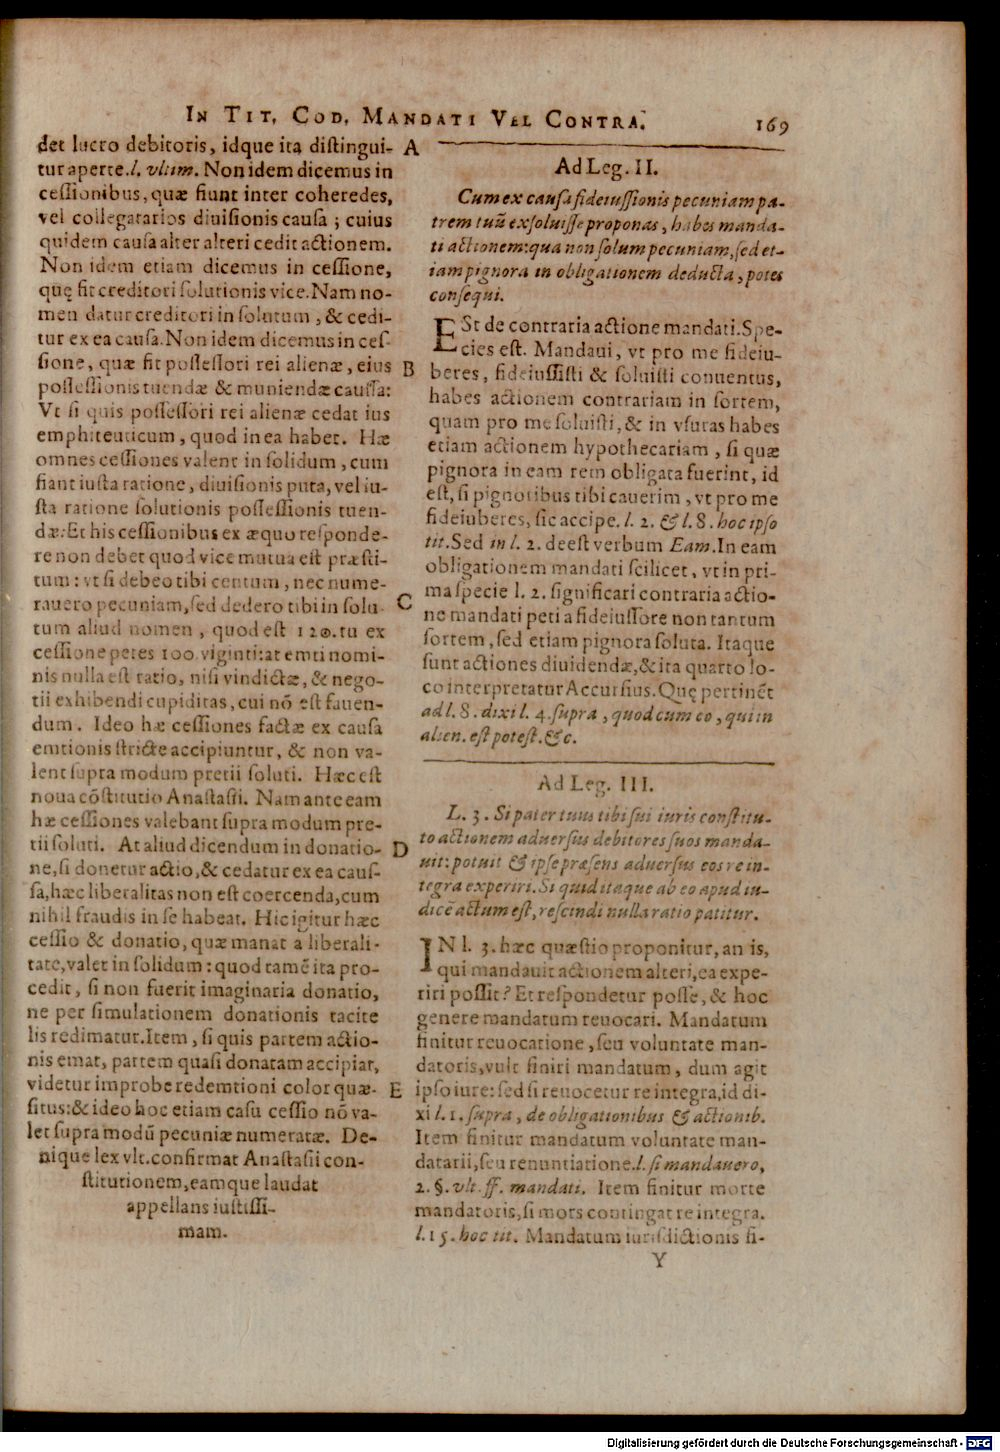 IN TIT. COD. MANDATI VEL CONTRA. 169
det lucro debitoris, idque ita distingui-
tur aperte. l. vltim. Non idem dicemus in
cessionibus, quæ fiunt inter coheredes,
vel collegatarios diuisionis causa; cuius
quidem causa alter alteri cedit actionem.
Non idem etiam dicemus in cessione,
quę fit creditori solutionis vice. Nam no-
men datur creditori in solutum, & cedi-
tur ex ea causa. Non idem dicemus in ces-
sione, quæ fit possessori rei alienæ, eius
possessionis tuendæ & muniendæ caussa:
Vt si quis possessori rei alienæ cedat ius
emphiteuticum, quod in ea habet. Hæ
omnes cessiones valent in solidum, cum
fiant iusta ratione, diuisionis puta, vel iu-
sta ratione solutionis possessionis tuen-
dæ: Et his cessionibus ex æquo responde-
re non debet quod vice mutua est præsti-
tum: vt si debeo tibi centum, nec nume-
rauero pecuniam, sed dedero tibi in solu-
tum aliud nomen, quod est 120. tu ex
cessione petes 100. viginti: at emti nomi-
nis nulla est ratio, nisi vindictæ, & nego-
tii exhibendi cupiditas, cui nō est fauen-
dum. Ideo hæ cessiones factæ ex causa
emtionis stricte accipiuntur, & non va-
lent supra modum pretii soluti. Hæc est
noua cōstitutio Anastasii. Nam ante eam
hæ cessiones valebant supra modum pre-
tii soluti. At aliud dicendum in donatio-
ne, si donetur actio, & cedatur ex ea caus-
sa, hæc liberalitas non est coercenda, cum
nihil fraudis in se habeat. Hic igitur hæc
cessio & donatio, quæ manat a liberali-
tate, valet in solidum: quod tamē ita pro-
cedit, si non fuerit imaginaria donatio,
ne per simulationem donationis tacite
lis redimatur. Item, si quis partem actio-
nis emat, partem quasi donatam accipiat,
videtur improbe redemtioni color quæ-
situs: & ideo hoc etiam casu cessio nō va-
let supra modū pecuniæ numeratæ. De-
nique lex vlt. confirmat Anastasii con-
stitutionem, eamque laudat
appellans iustissi-
mam.
A
B
C
D
E
Ad Leg. II.
Cum ex causa fideiussionis pecuniam pa-
trem tuū exsoluisse proponas, habes manda-
ti actionem: qua non solum pecuniam, sed et-
iam pignora in obligationem deducta, potes
consequi.
ESt de contraria actione mandati. Spe-
cies est. Mandaui, vt pro me fideiu-
beres, fideiussisti & soluisti conuentus,
habes actionem contrariam in sortem,
quam pro me soluisti, & in vsuras habes
etiam actionem hypothecariam, si quæ
pignora in eam rem obligata fuerint, id
est, si pignotibus tibi cauerim, vt pro me
fideiuberes, sic accipe. l. 2. & l. 8. hoc ipso
tit. Sed in l. 2. deest verbum Eam. In eam
obligationem mandati scilicet, vt in pri-
ma specie l. 2. significari contraria actio-
ne mandato peti a fideiussore non tantum
sortem, sed etiam pignora soluta. Itaque
sunt actiones diuidendæ, & ita quarto lo-
co interpretatur Accursius. Quę pertinēt
ad l. 8. dixi l. 4. supra, quod cum eo, qui in
alien. est potest. &c.
Ad Leg. III.
L. 3. Si pater tuus tibi sui iuris constitu-
to actionem aduersus debitores suos manda-
uit: potuit & ipse præsens aduersus eos re in-
tegra experiri. Si quid itaque ab eo apud iu-
dicē actum est, rescindi nulla ratio patitur.
IN l. 3. hæc quæstio proponitur, an is,
qui mandauit actionem alteri, ea expe-
riri possit? Et respondetur posse, & hoc
genere mandatum reuocari. Mandatum
finitur reuocatione, seu voluntate man-
datoris, vult finiri mandatum, dum agit
ipso iure: sed si reuocetur re integra, id di-
xi l. 1. supra, de obligationibus & actionib.
Item finitur mandatum voluntate man-
datarii, seu renuntiatione. l. si mandauero,
2. §. vlt. ff. mandati. Item finitur morte
mandatoris, si mors contingat re integra.
l. 15. hoc tit. Mandatum iurisdictionis fi-
Y
Digitalisierung gefördert durch die Deutsche Forschungsgemeinschaft - DFG